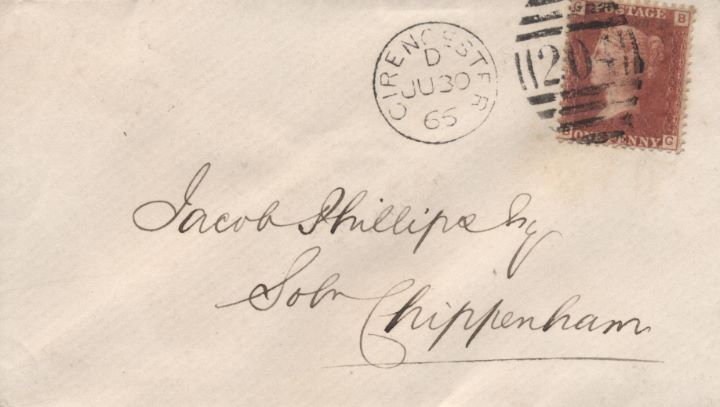 CIRENCESTER
D
JU 30
65
204
G POSTAGE B
B ONE PENNY G
Jacob Phillips Esq
Solr Chippenham